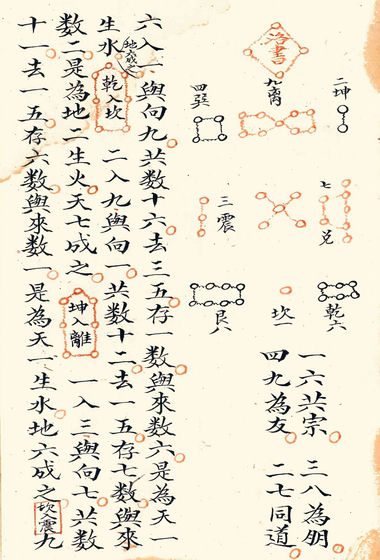 洛書
二坤
九离
四巽
七兑
三震
乾六
坎一
艮八
一六共宗 三八為朋
四九為友 二七同道
六入一與向九共數十六去三五存一數與來數六是為天一
生水地六成之 乾入坎 二入九與向一共數十二去一五存七數與來
數二是為地二生火天七成之 坤入離 一入三與向七共數
十一去一五存六數與來數一是為天一生水地六成之 坎震 九